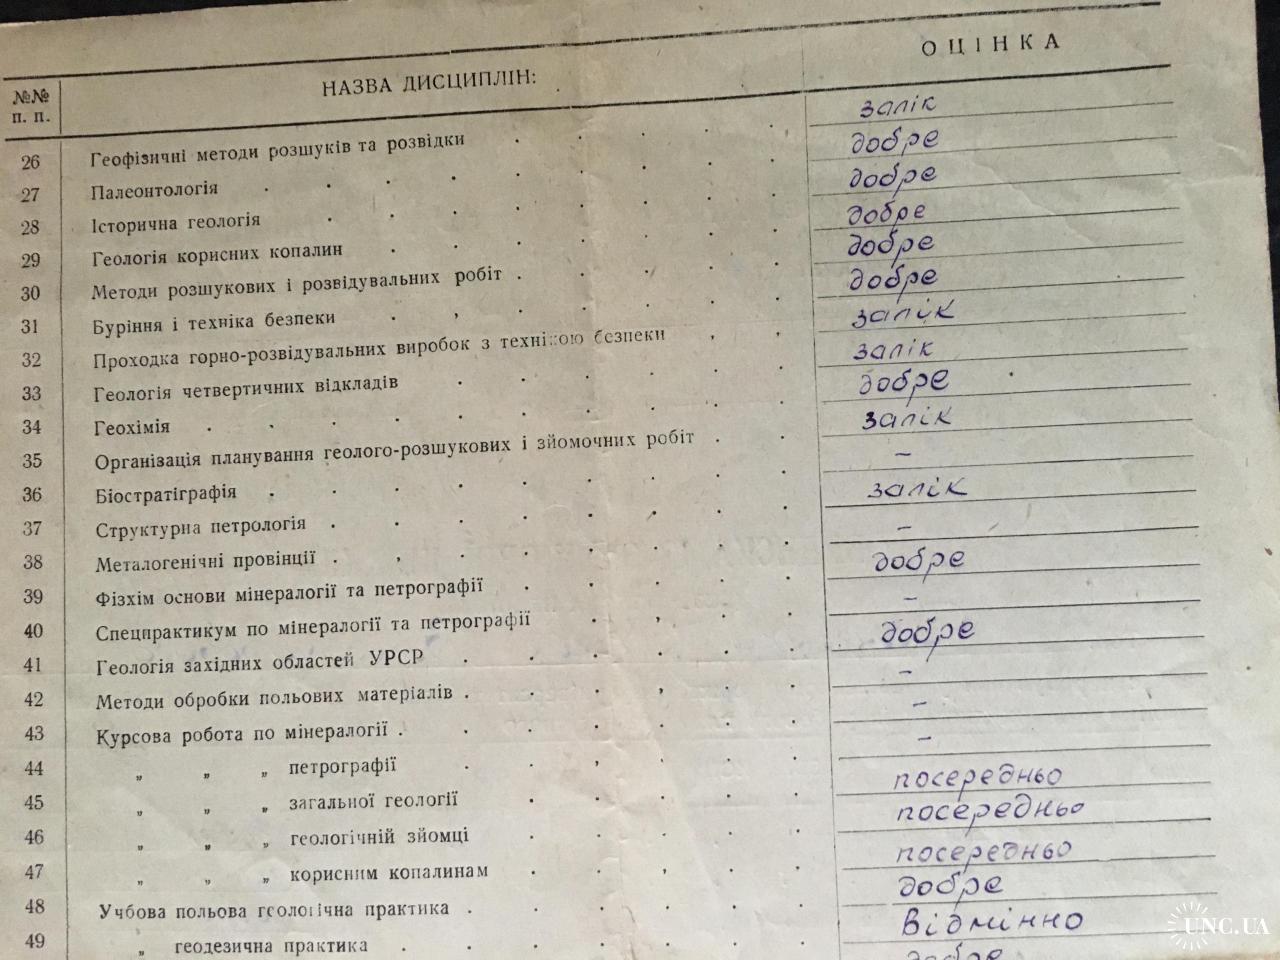 №№ п. п. НАЗВА ДИСЦИПЛІН: ОЦІНКА
26 Геофізичні методи розшуків та розвідки залік
27 Палеонтологія добре
28 Історична геологія добре
29 Геологія корисних копалин добре
30 Методи розшукових і розвідувальних робіт добре
31 Буріння і техніка безпеки добре
32 Проходка горно-розвідувальних виробок з технікою безпеки залік
33 Геологія четвертичних відкладів залік
34 Геохімія добре
35 Організація планування геолого-розшукових і зйомочних робіт залік
36 Біостратіграфія –
37 Структурна петрологія залік
38 Металогенічні провінції –
39 Фізхім основи мінералогії та петрографії добре
40 Спецпрактикум по мінералогії та петрографії –
41 Геологія західних областей УРСР добре
42 Методи обробки польових матеріалів –
43 Курсова робота по мінералогії –
44 „ „ „ петрографії –
45 „ „ „ загальної геології посередньо
46 „ „ „ геологічній зйомці посередньо
47 „ „ „ корисним копалинам посередньо
48 Учбова польова геологічна практика добре
49 „ геодезична практика Відмінно
добре
UNC.UA